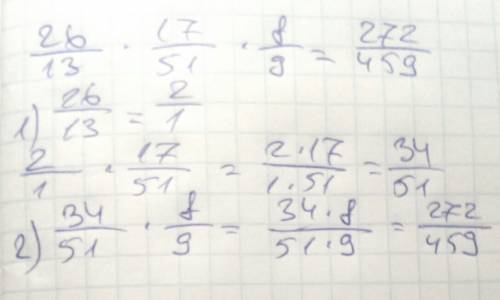 26/13 · 17/51 · 8/9 = 272/459
1) 26/13 = 2/1
2/1 · 17/51 = 2·17/1·51 = 34/51
2) 34/51 · 8/9 = 34·8/51·9 = 272/459